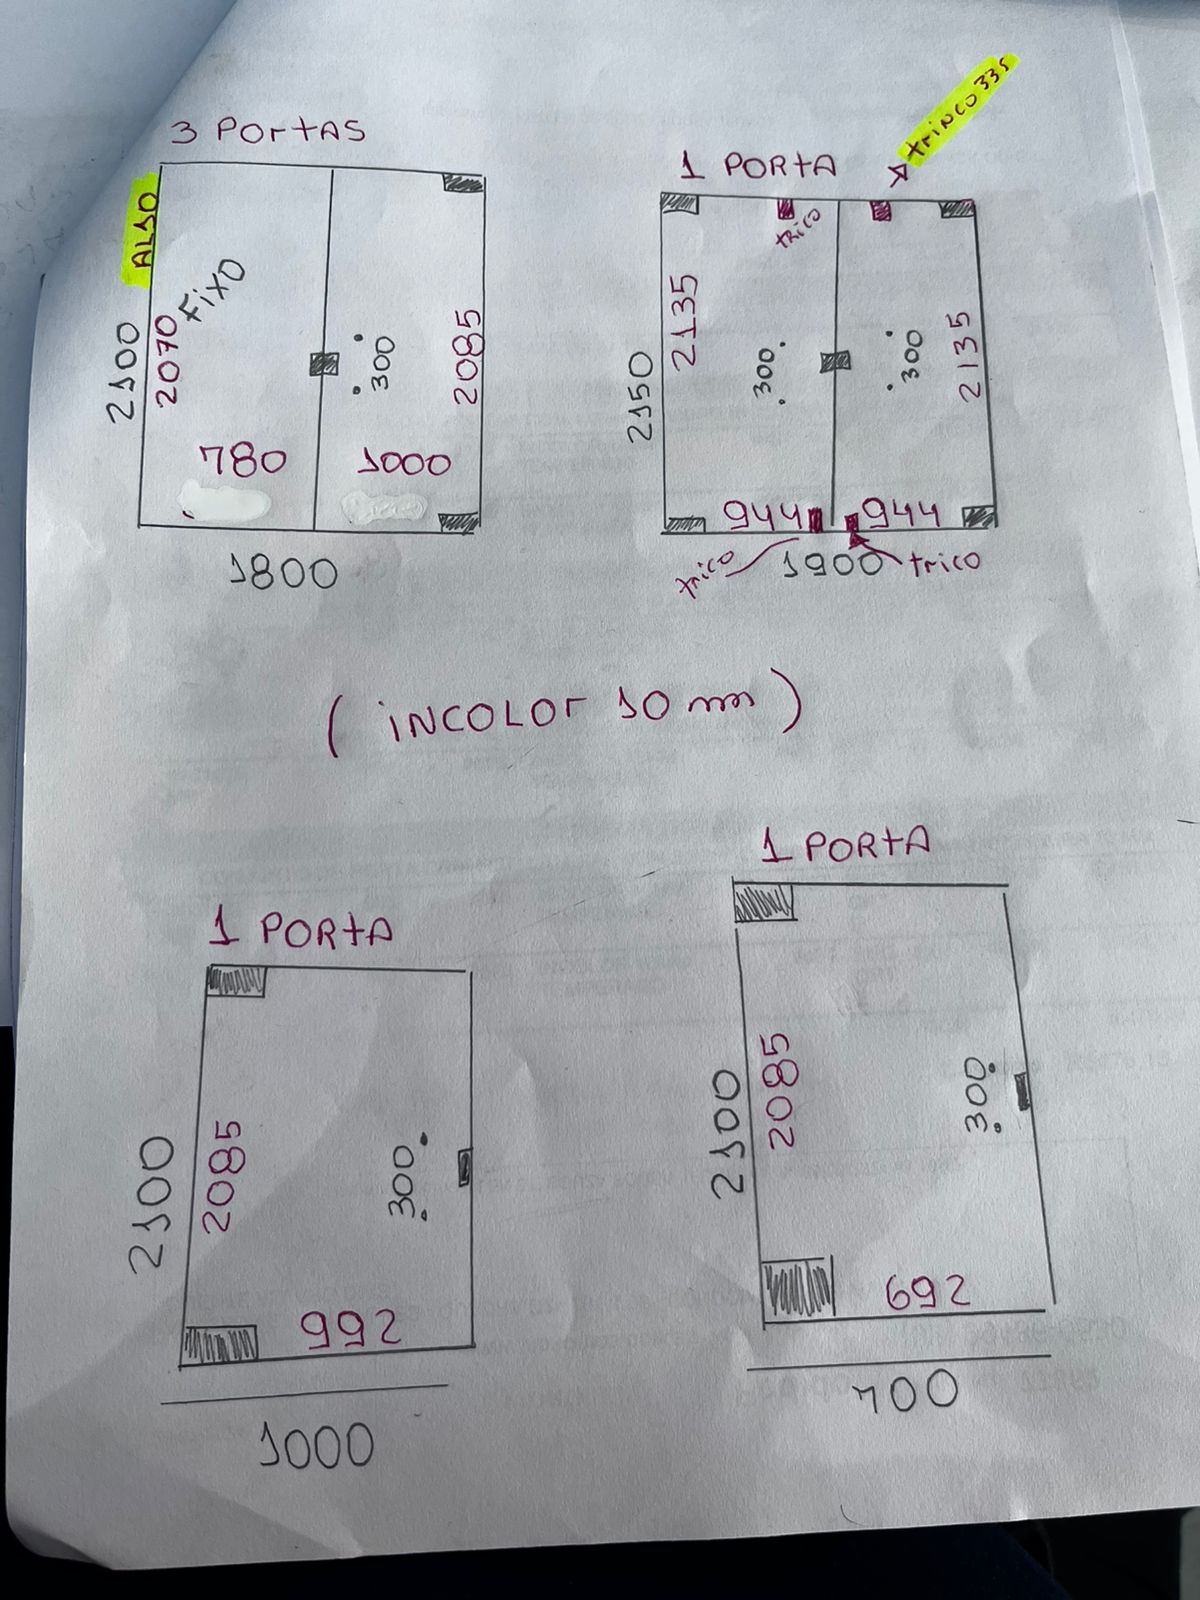 3 PORTAS
AL10
2100
2070
FIXO
300
2085
780
1000
1800
1 PORTA
TRINCO 335
trico
2150
2135
300
300
2135
944
944
trico
1900
trico
(INCOLOR 10 mm)
1 PORTA
2100
2085
300
992
1000
1 PORTA
2100
2085
300
692
700